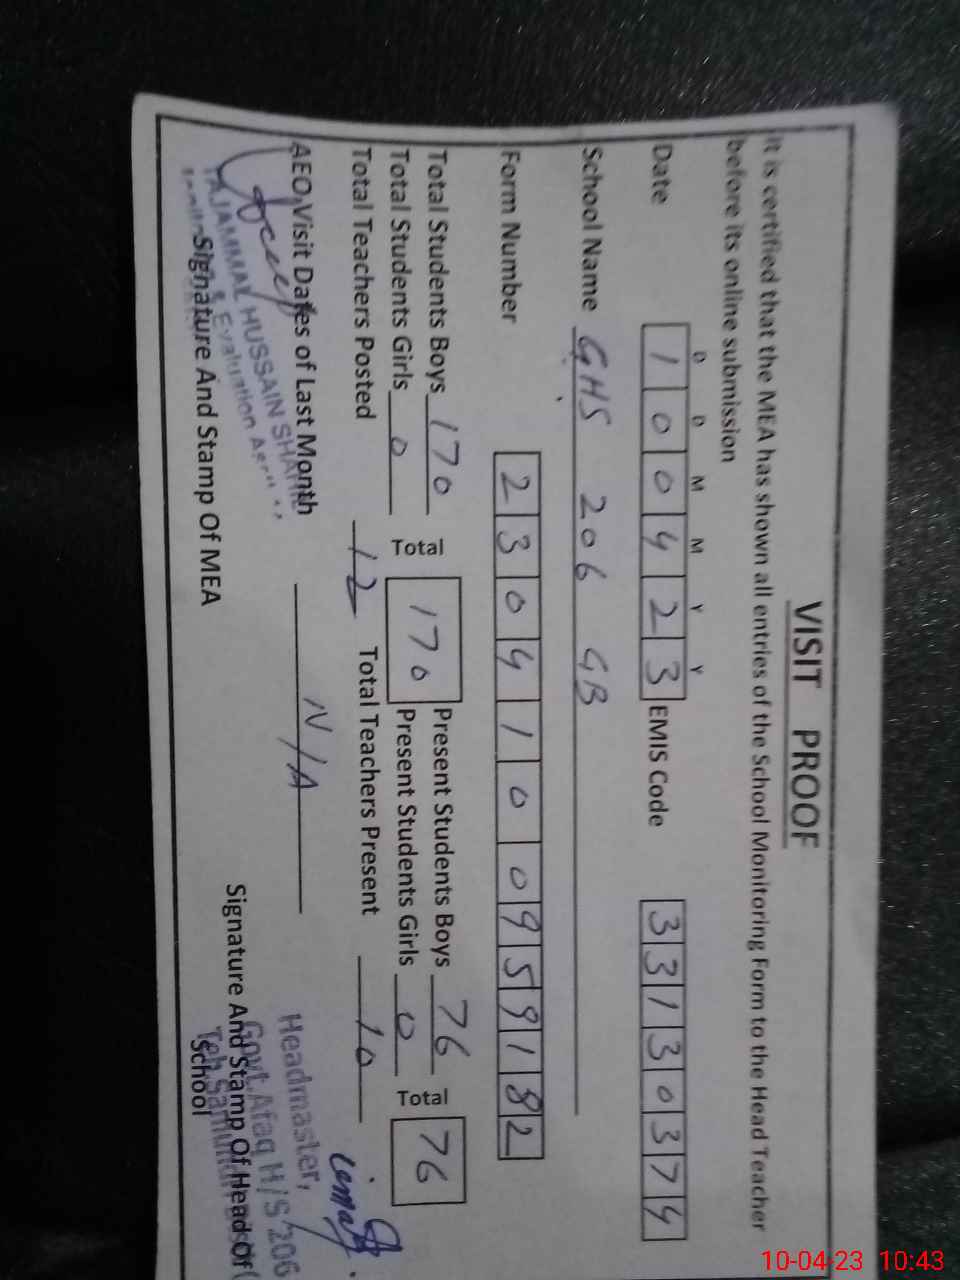 VISIT PROOF
It is certified that the MEA has shown all entries of the School Monitoring Form to the Head Teacher
before its online submission
D D M M Y Y
Date 1 0 0 4 2 3 EMIS Code 3 3 1 3 0 3 7 4
School Name GHS 206 GB
Form Number 2 3 0 4 1 0 0 9 5 9 1 8 2
Total Students Boys 170 Total 170 Present Students Boys 76 Total 76
Total Students Girls 0 Present Students Girls 0
Total Teachers Posted 12 Total Teachers Present 10
AEO,Visit Dates of Last Month N/A
TAJAMMAL HUSSAIN
& Evaluation
Signature And Stamp Of MEA
Headmaster,
Govt. Afaq H/S 206
Signature And Stamp Of Head Of
School
10-04-23 10:43